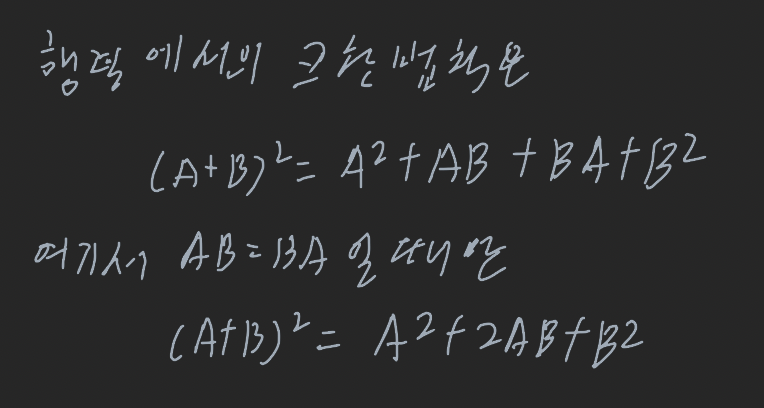 행렬에서의 크는 법칙은
(A+B)²= A²+AB+BA+B²
여기서 AB=BA일 때만
(A+B)²= A²+2AB+B2